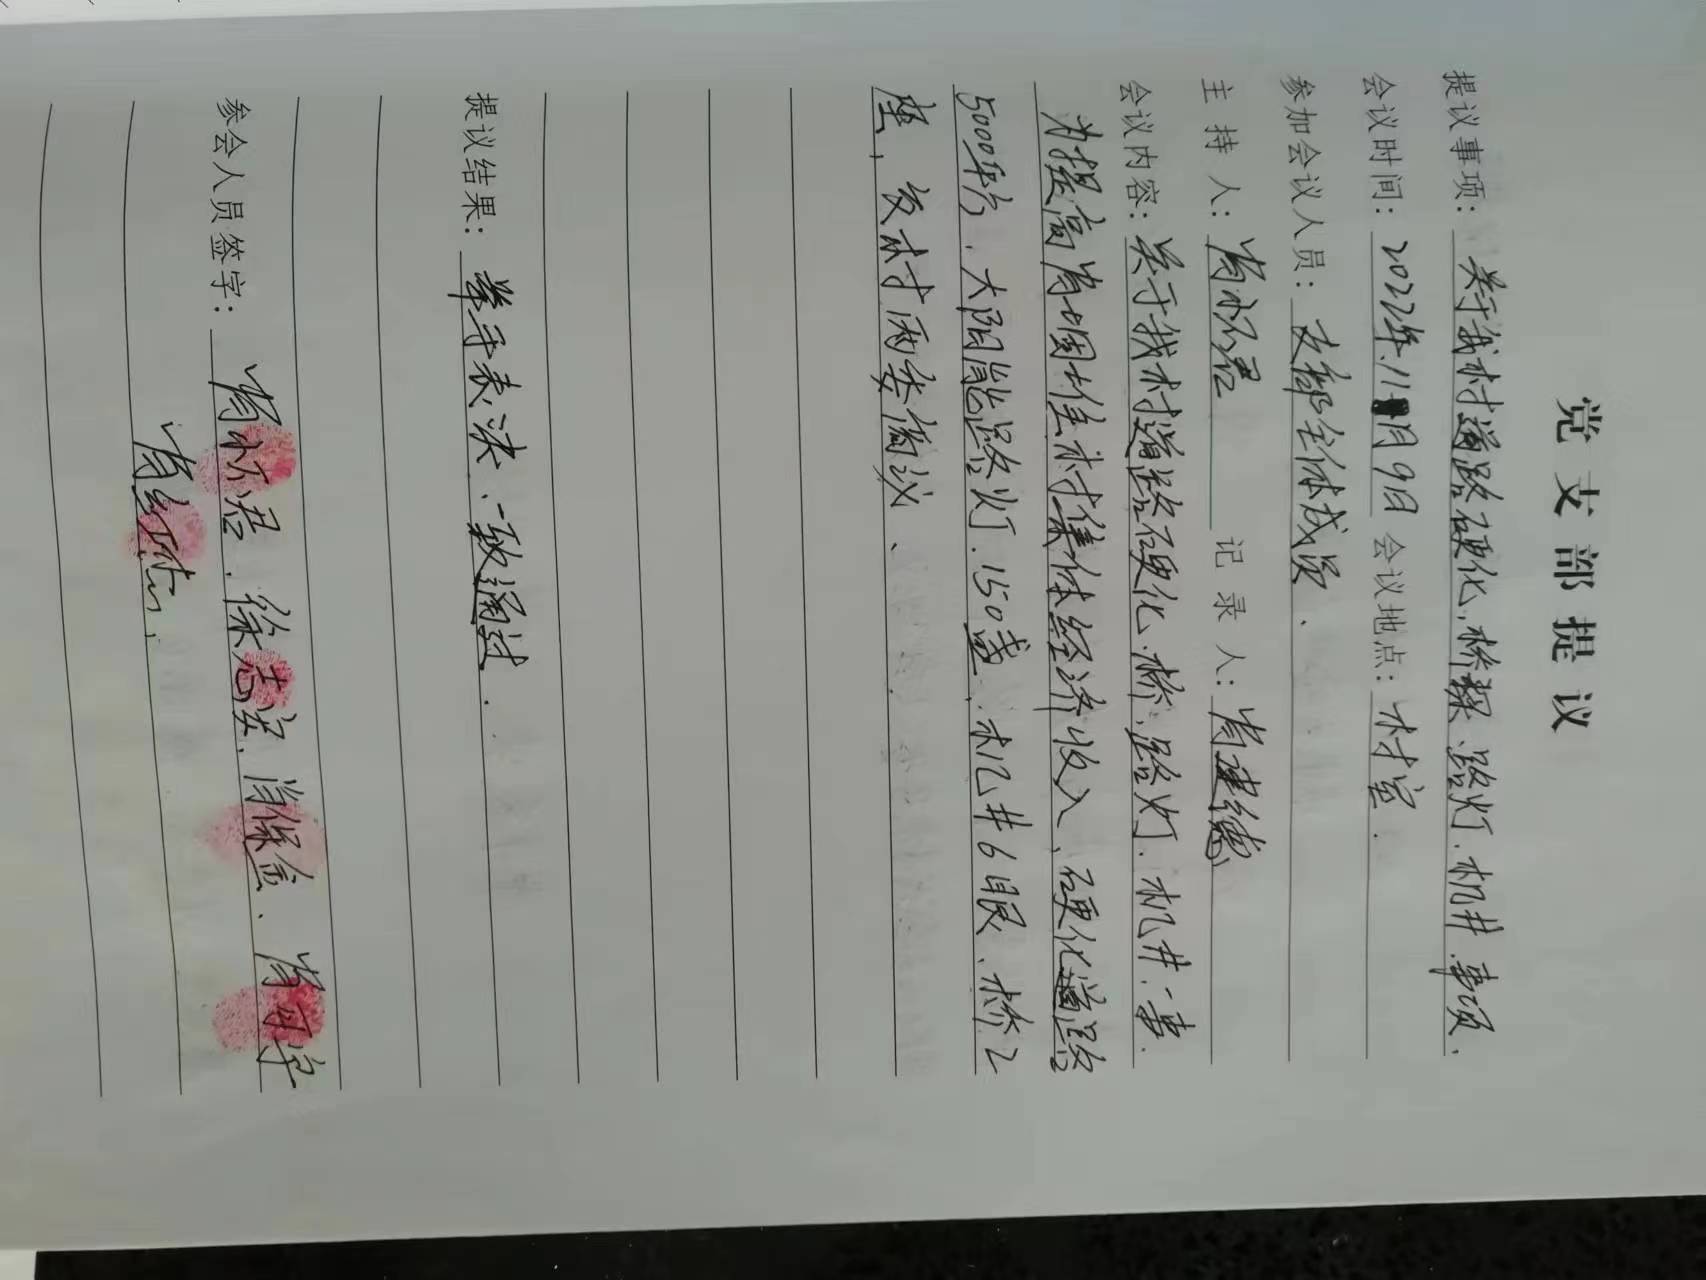 党支部提议
提议事项: 关于我村道路硬化,桥梁、路灯、机井、事项.
会议时间: 2022年11月9日 会议地点: 村室.
参加会议人员: 支部全体成员、
主 持 人: 肖永君 记 录 人: 肖建德
会议内容: 关于我村道路硬化、桥、路灯、机井、事.
为提高肖堌堆村集体经济收入,硬化道路
5000平方、太阳能路灯.150盏、机井6眼、桥2
座,交村两委商议、
提议结果: 举手表决、一致通过.
参会人员签字: 肖永君、徐志安、肖保金、肖
肖红